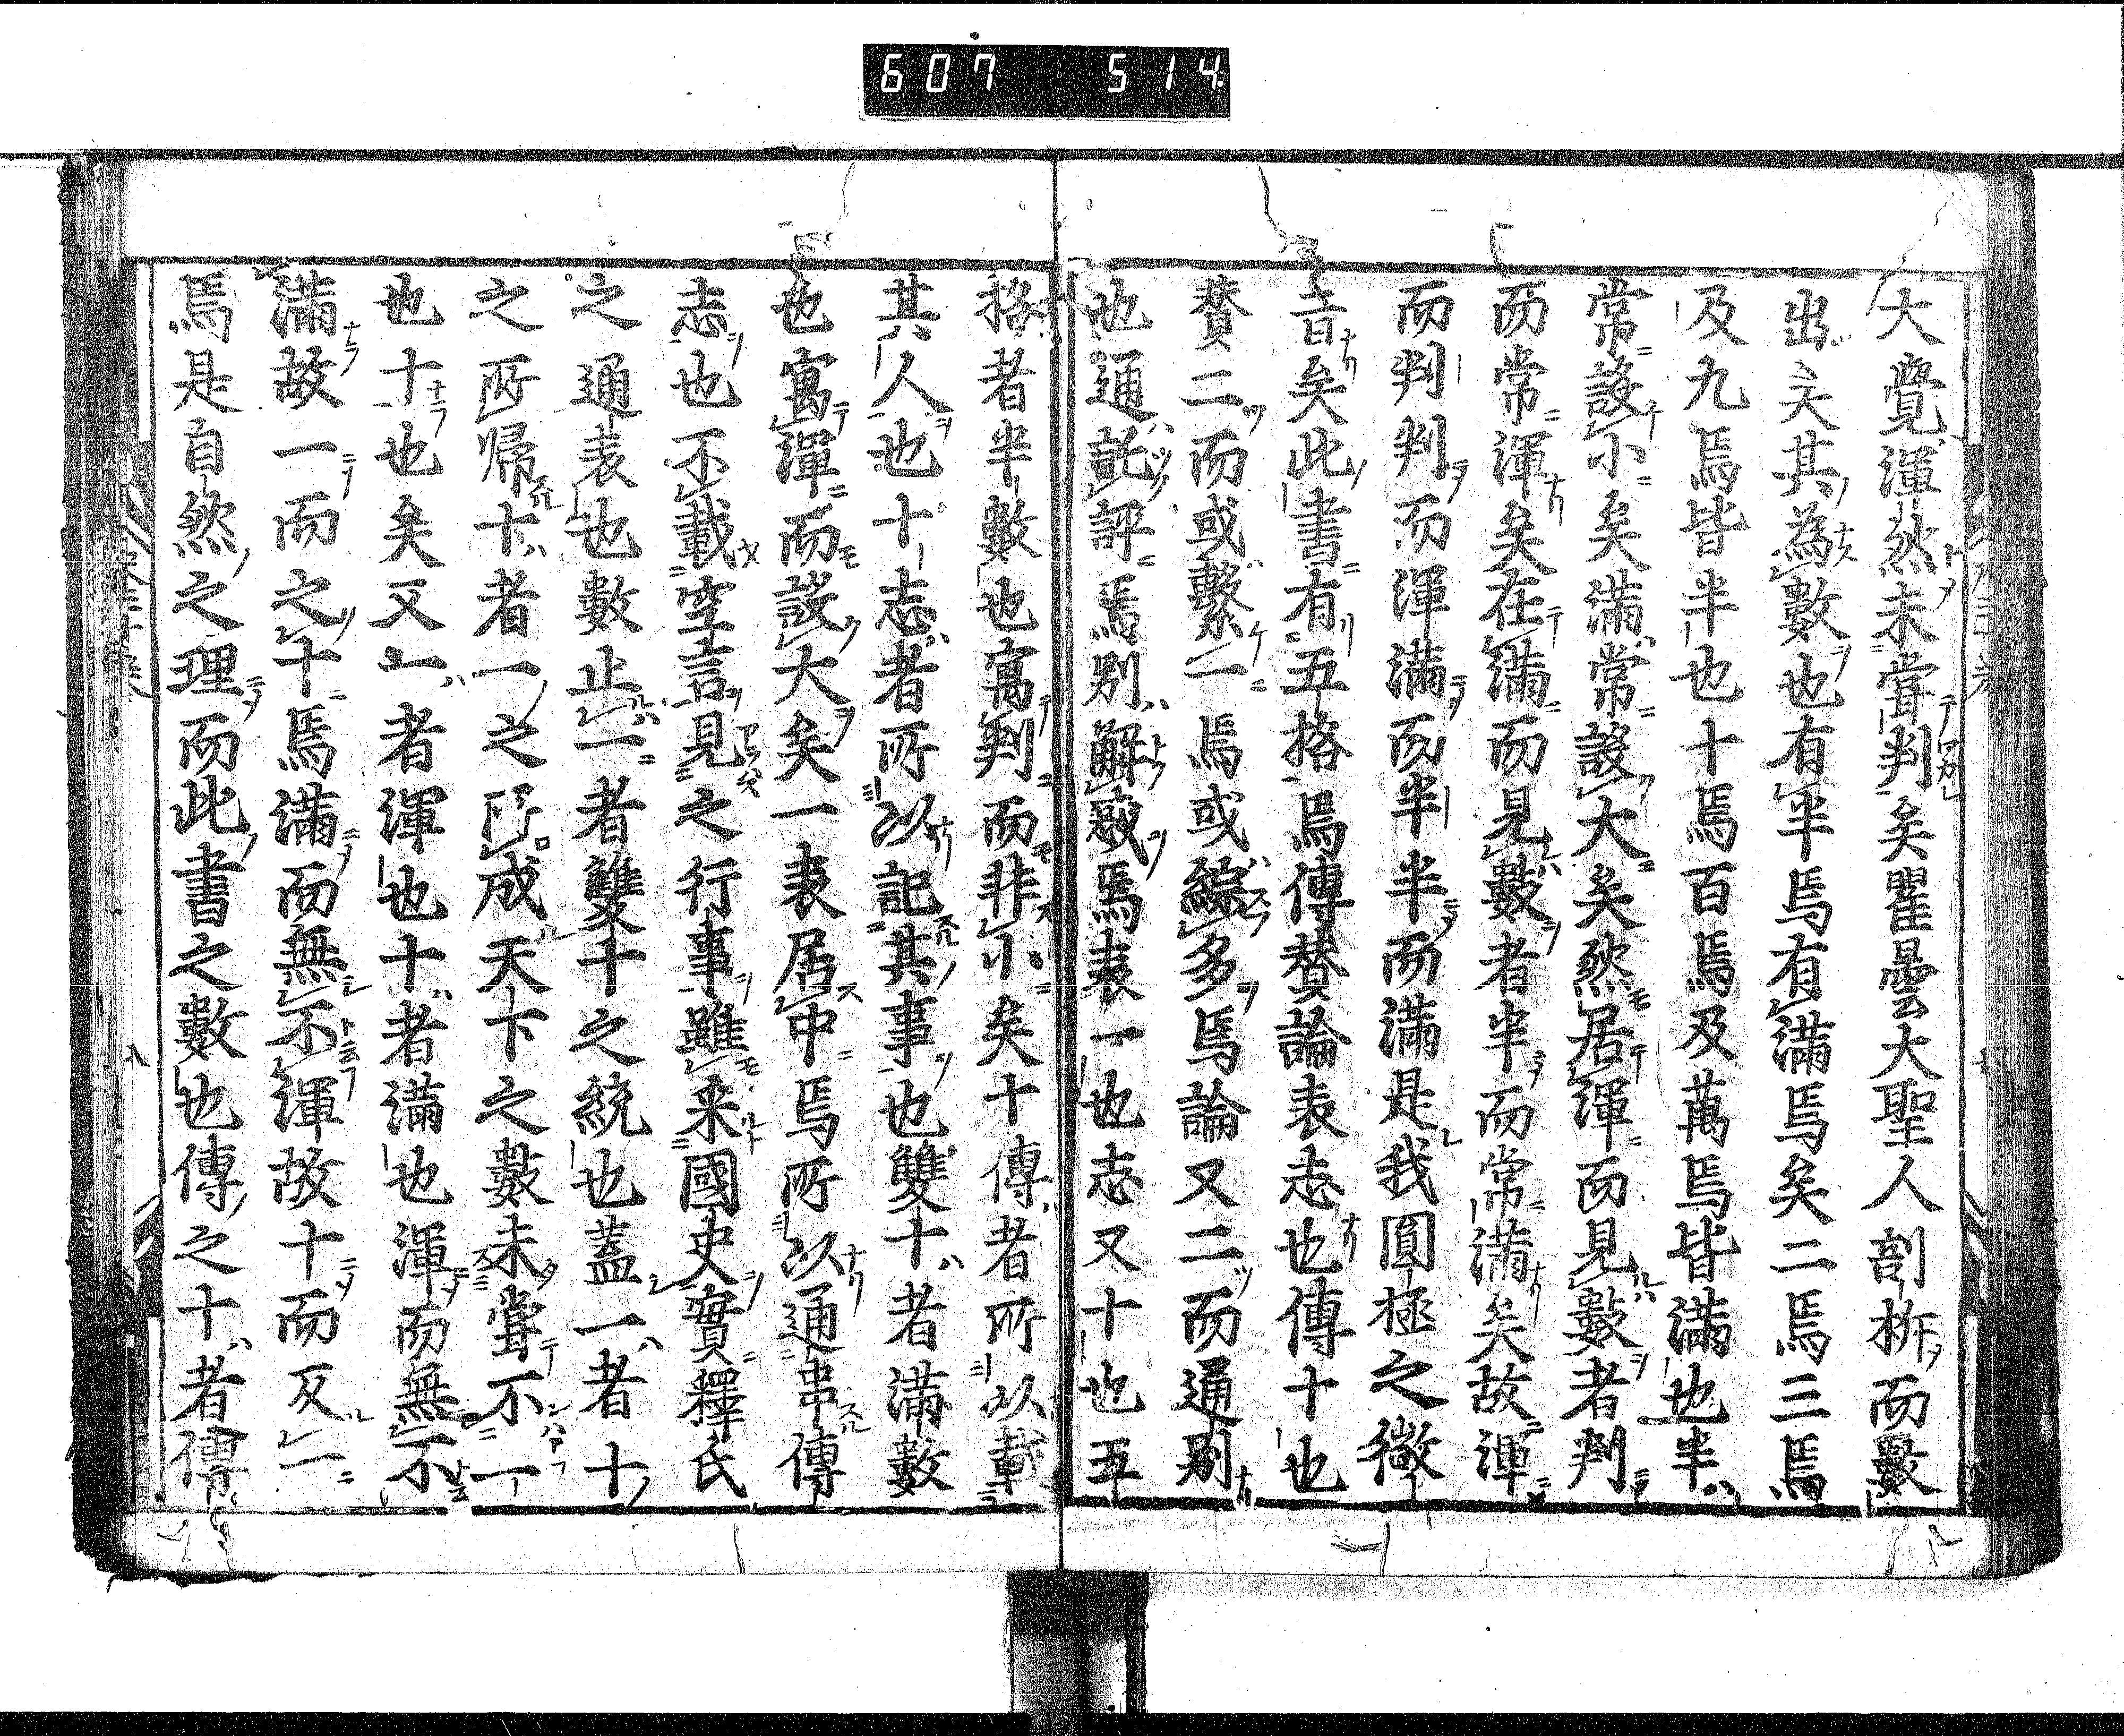 607 514
大覺渾然未甞判矣瞿曇大聖人剖析而數
出矣其為數也有半焉有滿焉矣二焉三焉
及九焉皆半也十焉百焉及萬焉皆滿也半
常設小矣滿常設大矣然居渾而見數者判
而常渾矣在滿而見數者半而常滿矣故渾
而判判而渾滿而半半而滿是我圓極之徽
音矣此書有五挌焉傳賛論表志也傳十也
賛二而或繫一焉或綜多焉論又二而通別
也通託評焉別解惑焉表一也志又十也五
挌者半數也寓判而非小矣十傳者所以載
其人也十志者所以記其事也雙十者滿數
也寓渾而設大矣一表居中焉所以通串傳
志也不載空言見之行事雖来國史實釋氏
之通表也數止一者雙十之統也蓋一者十
之所帰十者一之所成天下之數未甞不一
也十也矣又一者渾也十者滿也渾而無不
滿故一而之十焉滿而無不渾故十而反一
焉是自然之理而此書之數也傳之十者傳